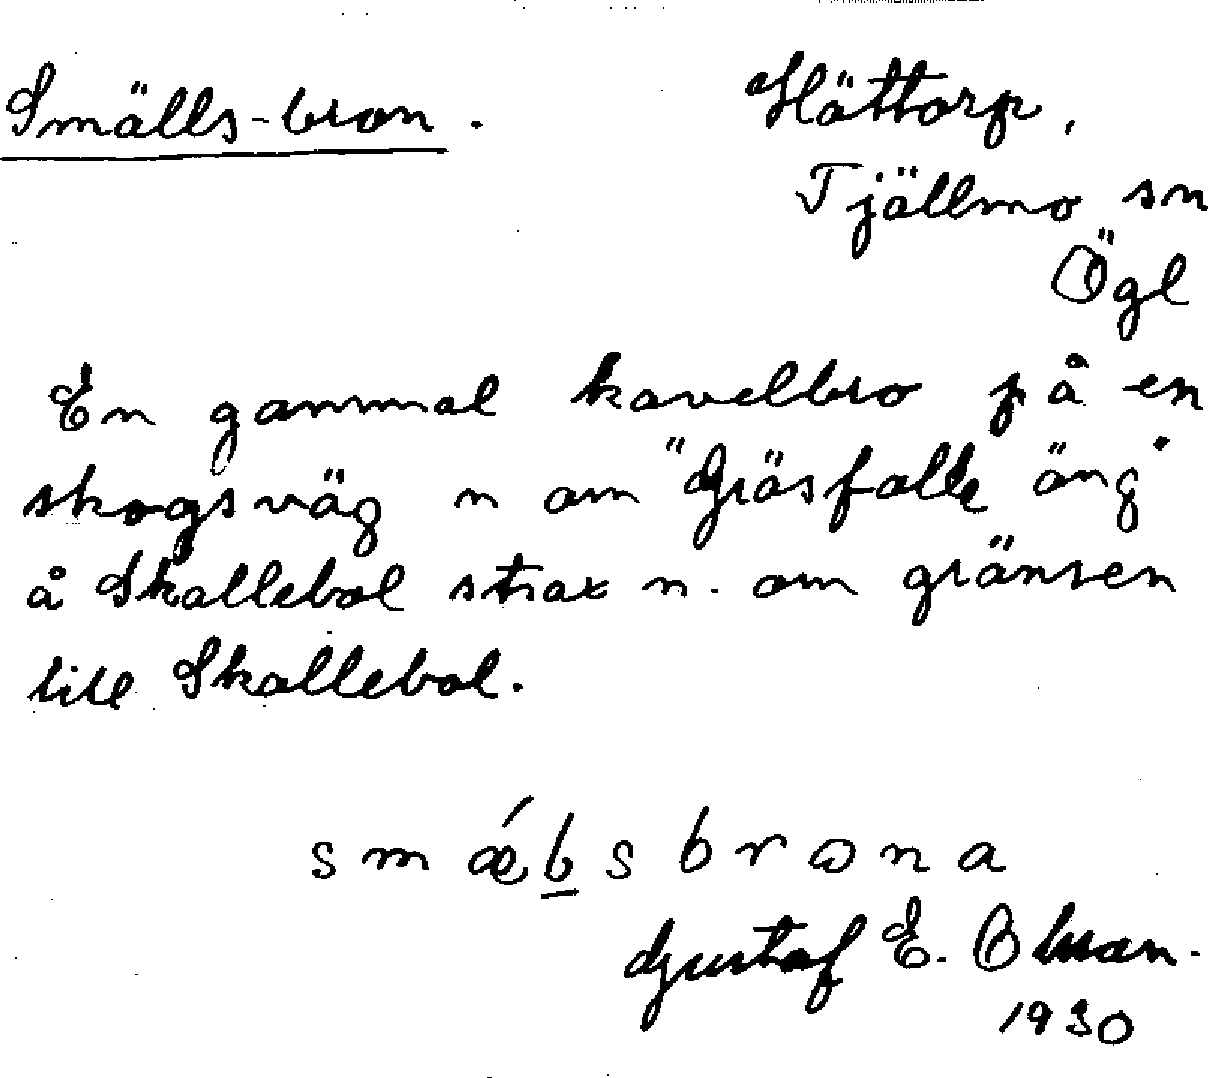 Smälls-bron. Hättorp,
Tjällmo sn
Ögl
En gammal kavelbro på en
skogsväg n om "Gräsfalle äng"
å Skallebol strax n. om gränsen
till Skallebol.
smǽbsbrona
Gustaf E. Olsson.
1930